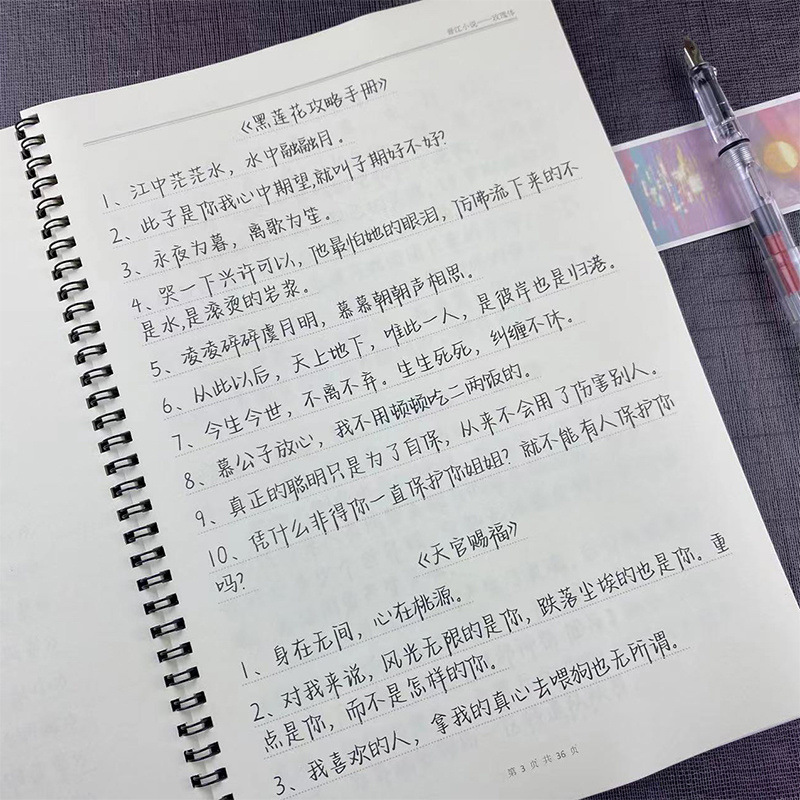 晋江小说——玫瑰体
《黑莲花攻略手册》
1、江中茫茫水，水中融融月。
2、此子是你我心中期望,就叫子期好不好?
3、永夜为暮，离歌为笙。
4、哭一下兴许可以，他最怕她的眼泪，仿佛流下来的不
是水,是滚烫的岩浆。
5、凌凌碎碎虞月明，慕慕朝朝声相思。
6、从此以后，天上地下，唯此一人，是彼岸也是归港。
7、今生今世，不离不弃。生生死死，纠缠不休。
8、慕公子放心，我不用顿顿吃二两饭的。
9、真正的聪明只是为了自保，从来不会用了伤害别人。
10、凭什么非得你一直保护你姐姐？就不能有人保护你
吗?
《天官赐福》
1、身在无间，心在桃源。
2、对我来说，风光无限的是你，跌落尘埃的也是你。重
点是你，而不是怎样的你。
3、我喜欢的人，拿我的真心去喂狗也无所谓。
第 3 页 共 36 页